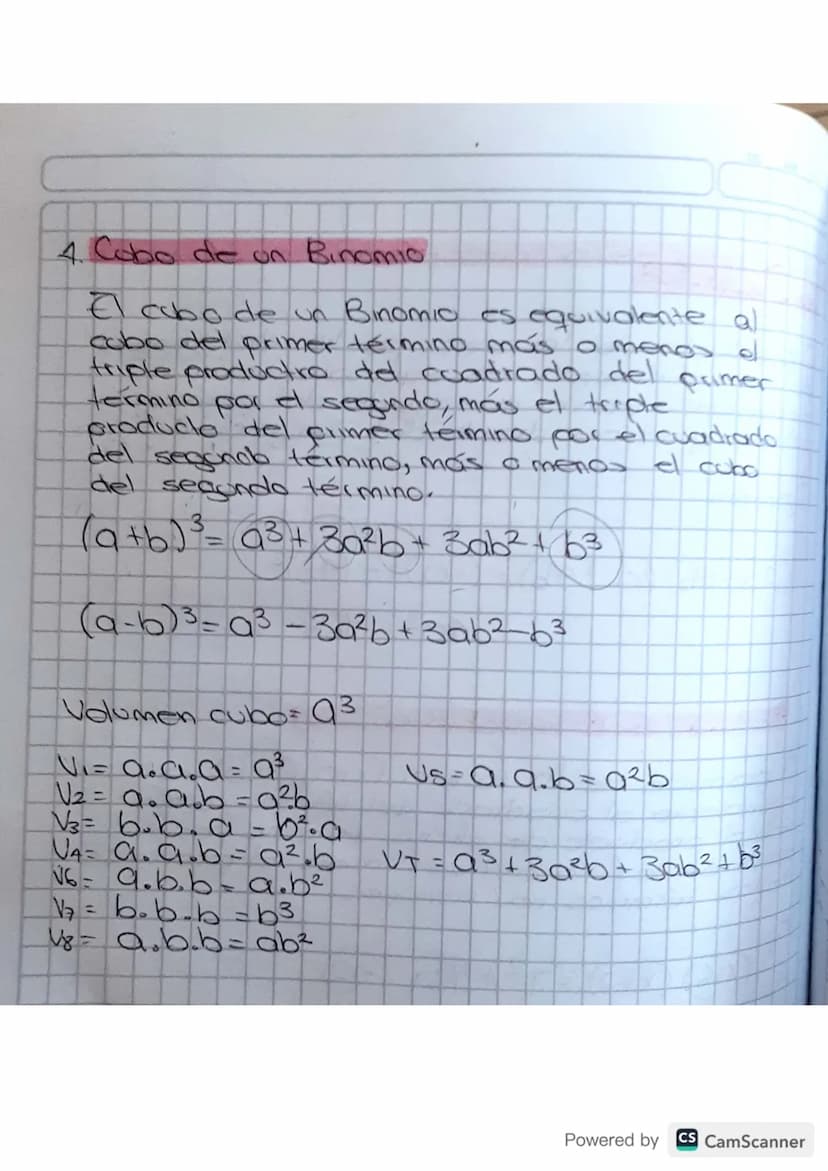 4. Cubo de un Binomio
El cubo de un Binomio es equivalente al
cubo del primer término más o menos el
triple productro del cuadrado del primer
término por el segundo, más el triple
producto del primer término por el cuadrado
del segundo término, más o menos el cubo
del segundo término.
(a+b)³= a³+ 3a²b+ 3ab²+ b³
(a-b)³= a³ - 3a²b + 3ab² - b³
Volumen cubo= a³
V1= a.a.a = a³
V2= a.a.b = a².b
V3= b.b.a = b².a
V4= a.a.b = a².b
V6= a.b.b = a.b²
V7= b.b.b = b³
V8= a.b.b = ab²
V5= a.a.b = a²b
VT = a³ + 3a²b + 3ab² + b³
Powered by CS CamScanner